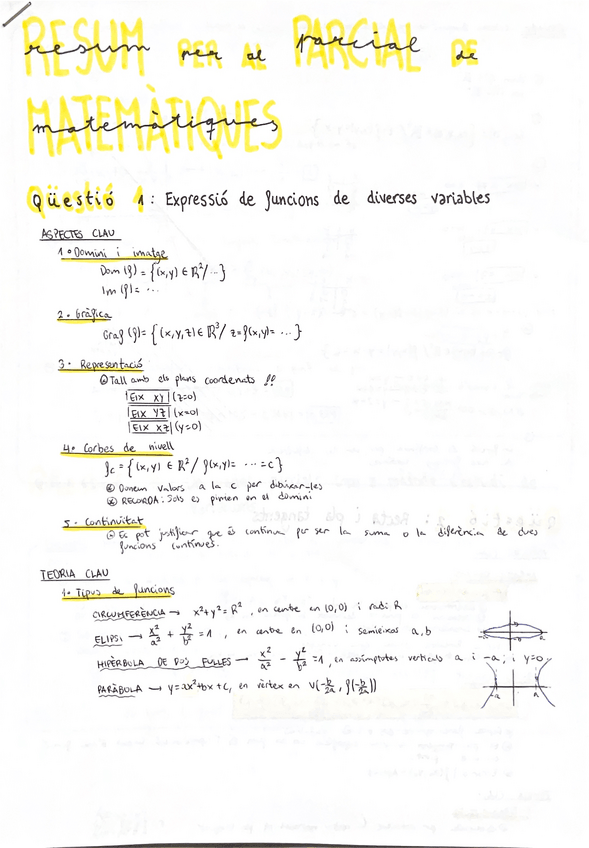 resum PER AL parcial DE
matemàtiques
Qüestió 1: Expressió de funcions de diverses variables
ASPECTES CLAU
1. Domini i imatge
Dom (f) = {(x,y) ∈ R²/...}
Im (f) = ...
2. Gràfica
Graf (f) = {(x,y,z) ∈ R³/ z=f(x,y)= ...}
3. Representació
Tall amb els plans coordenats !!
EIX XY (z=0)
EIX YZ (x=0)
EIX XZ (y=0)
4. Corbes de nivell
fc = {(x,y) ∈ R²/ f(x,y)= ... =c}
Donem valors a la c per dibuixar-les
RECORDA: Sols es pinten en el domini
5. Continuïtat
Es pot justificar que és contínua per ser la suma o la diferència de dues
funcions contínues.
TEORIA CLAU
1. Tipus de funcions
CIRCUMFERÈNCIA → x²+y²=R², en centre en (0,0) i radi R
ELIPSI → x²/a² + y²/b² = 1, en centre en (0,0) i semieixos a, b
HIPÈRBOLA DE DOS FULLES → x²/a² - y²/b² = 1, en assimptotes verticals a i -a; i y=0
PARÀBOLA → y=ax²+bx+c, en vèrtex en V(-b/2a, f(-b/2a))